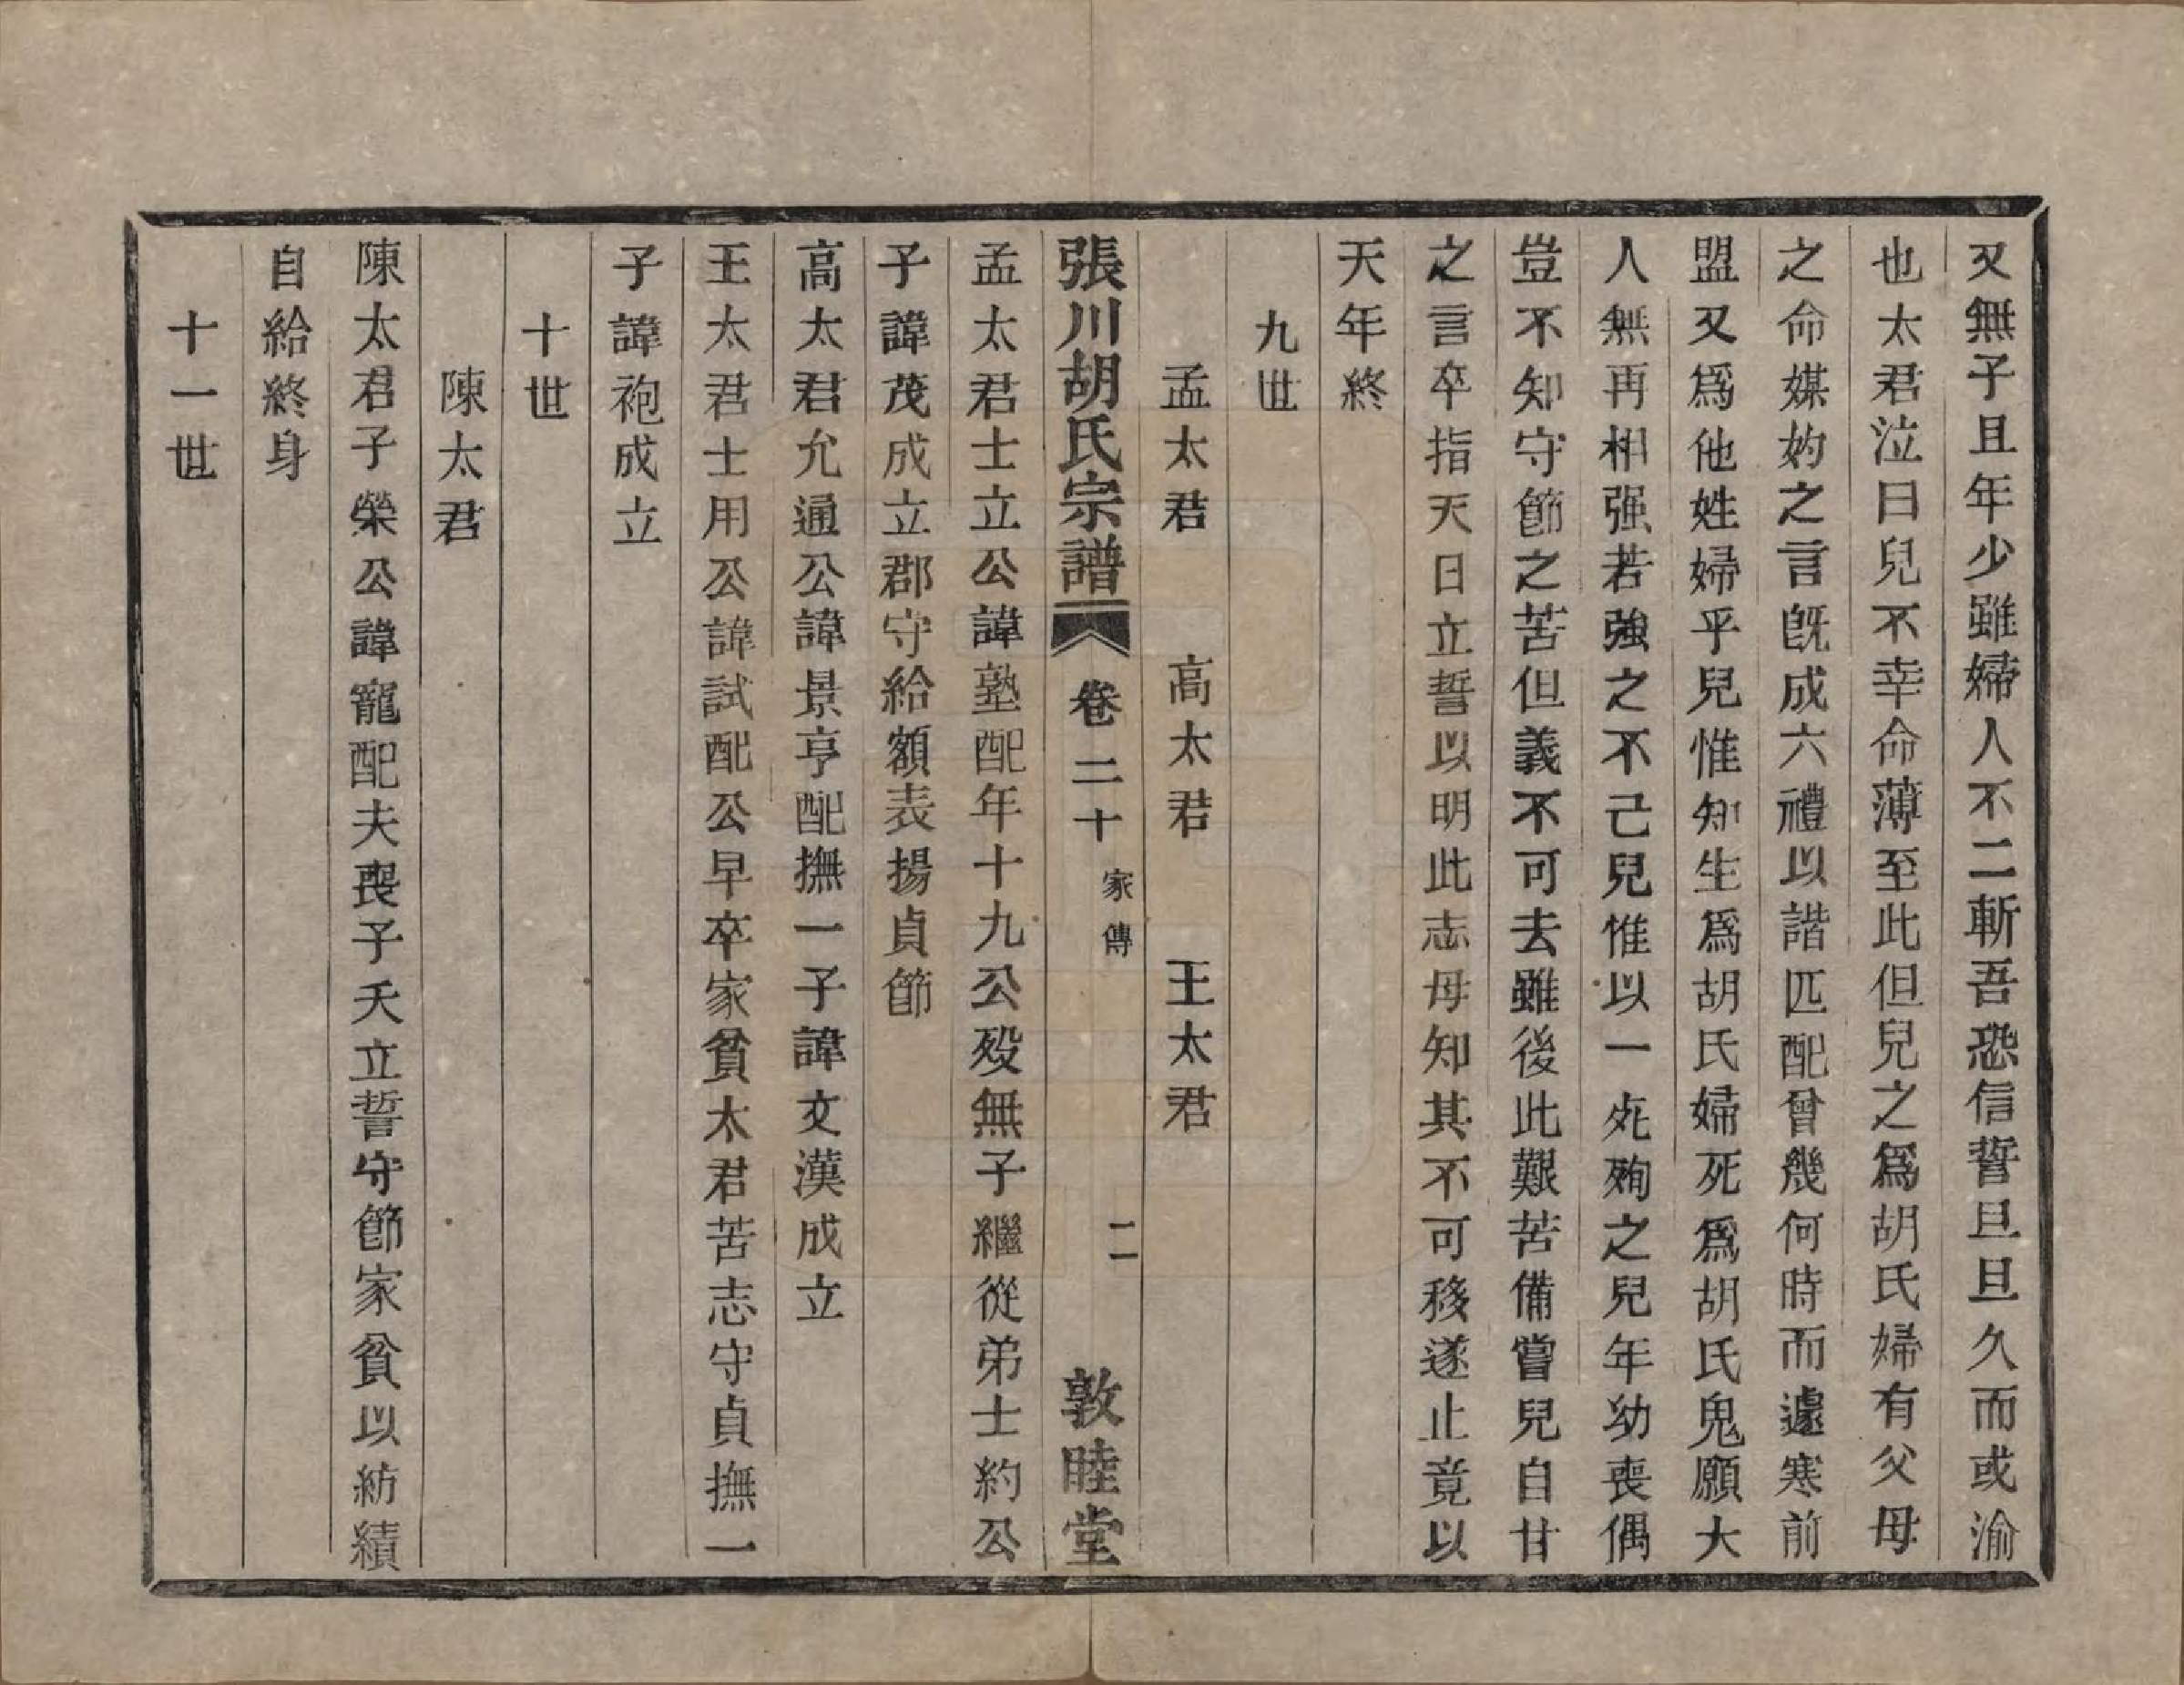 又無子且年少雖婦人不二斬吾恐信誓旦旦久而或渝
也太君泣曰兒不幸命薄至此但兒之爲胡氏婦有父母
之命媒妁之言旣成六禮以諧匹配曾幾何時而遽寒前
盟又爲他姓婦乎兒惟知生爲胡氏婦死爲胡氏鬼願大
人無再相强若強之不己兒惟以一死殉之兒年幼喪偶
豈不知守節之苦但義不可去雖後此艱苦備嘗兒自甘
之言卒指天日立誓以明此志母知其不可移遂止竟以
天年終
九世
孟太君 高太君 王太君
張川胡氏宗譜 卷二十 家傳 二 敦睦堂
孟太君士立公諱塾配年十九公歿無子繼從弟士約公
子諱茂成立郡守給額表揚貞節
高太君允通公諱景亨配撫一子諱文漢成立
王太君士用公諱試配公早卒家貧太君苦志守貞撫一
子諱袍成立
十世
陳太君
陳太君子榮公諱寵配夫喪子夭立誓守節家貧以紡績
自給終身
十一世